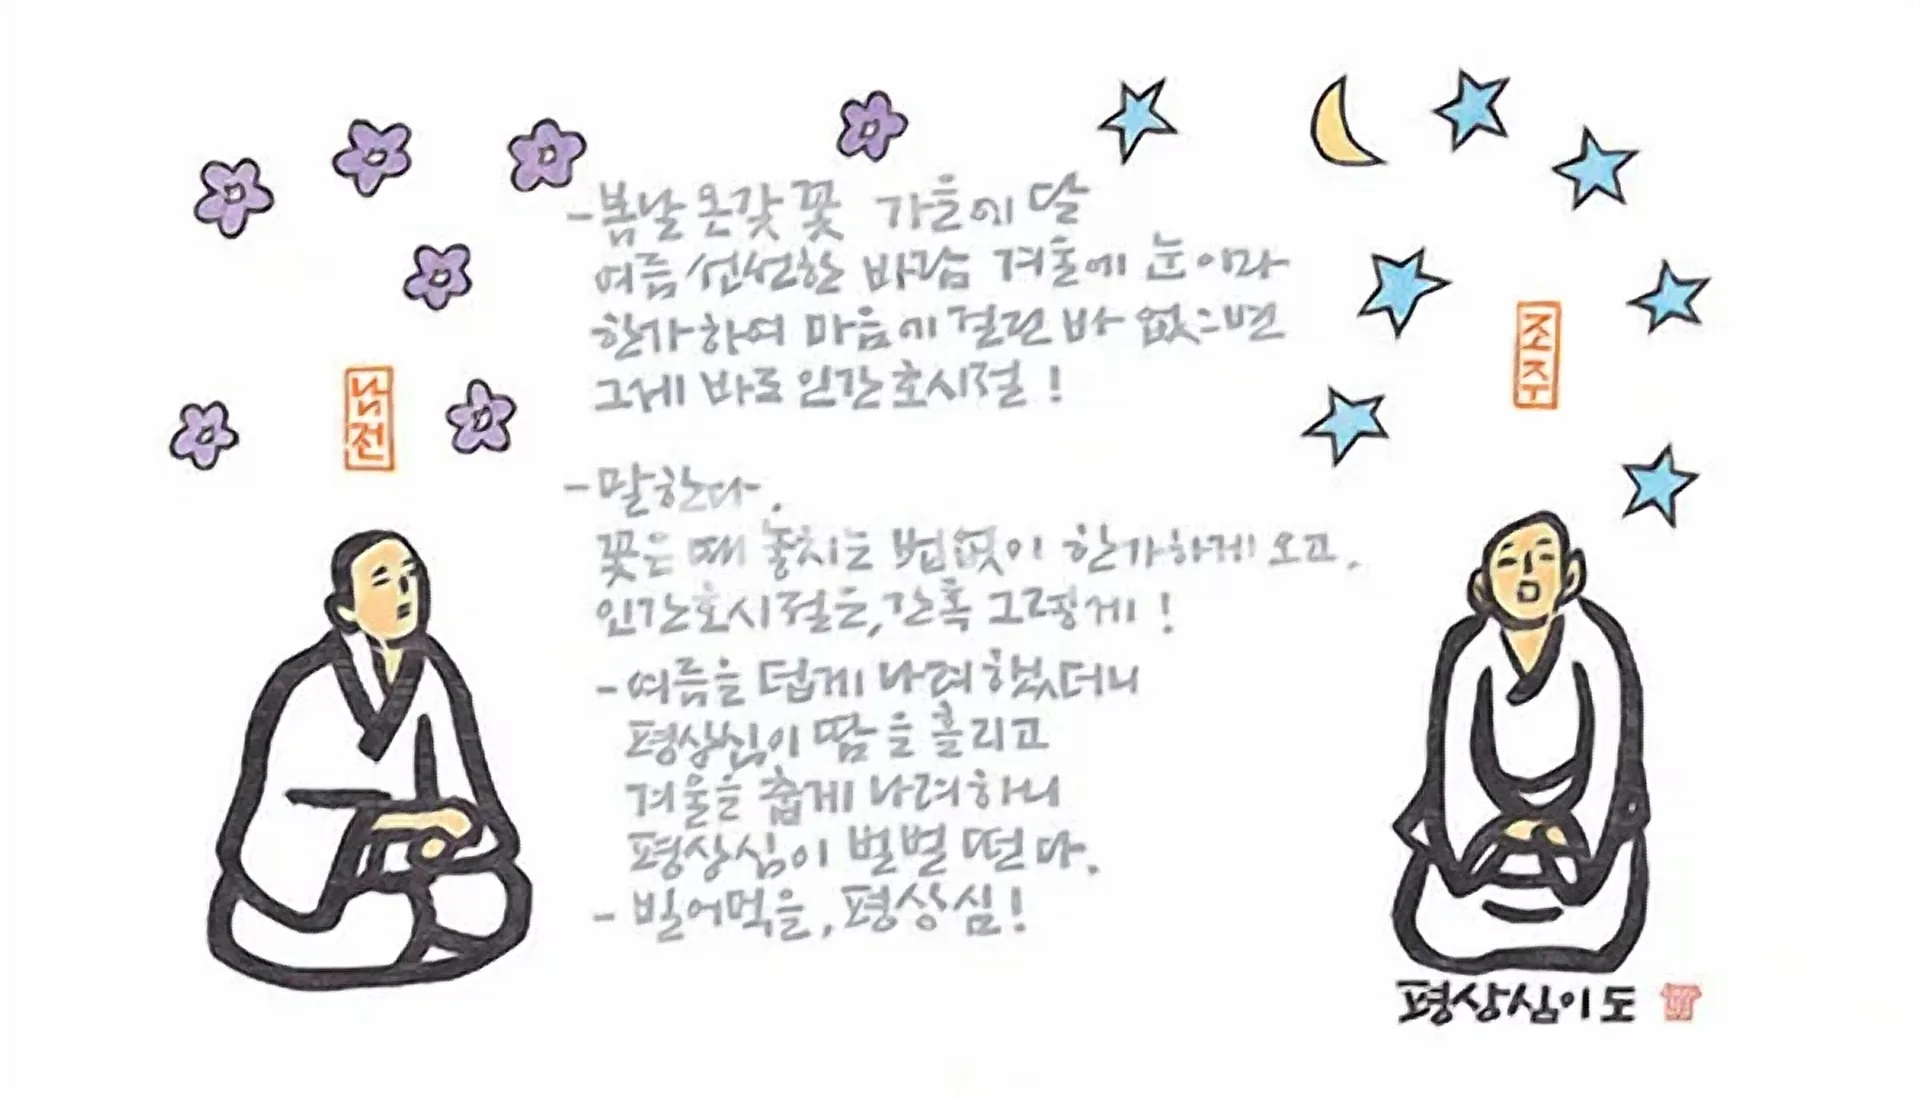 -봄날 온갖 꽃 가을에 달
여름 선선한 바람 겨울에 눈이라
한가하여 마음에 걸린 바 없으면
그게 바로 인간호시절!
-말한다.
꽃은 때 놓치는 법없이 한가하게 오고,
인간호시절은, 간혹 그렇게!
-여름을 덥게 나려했더니
평상심이 땀을 흘리고
겨울을 춥게 나려하니
평상심이 벌벌 떤다.
- 빌어먹을, 평상심!
남전
조주
평상심이 도